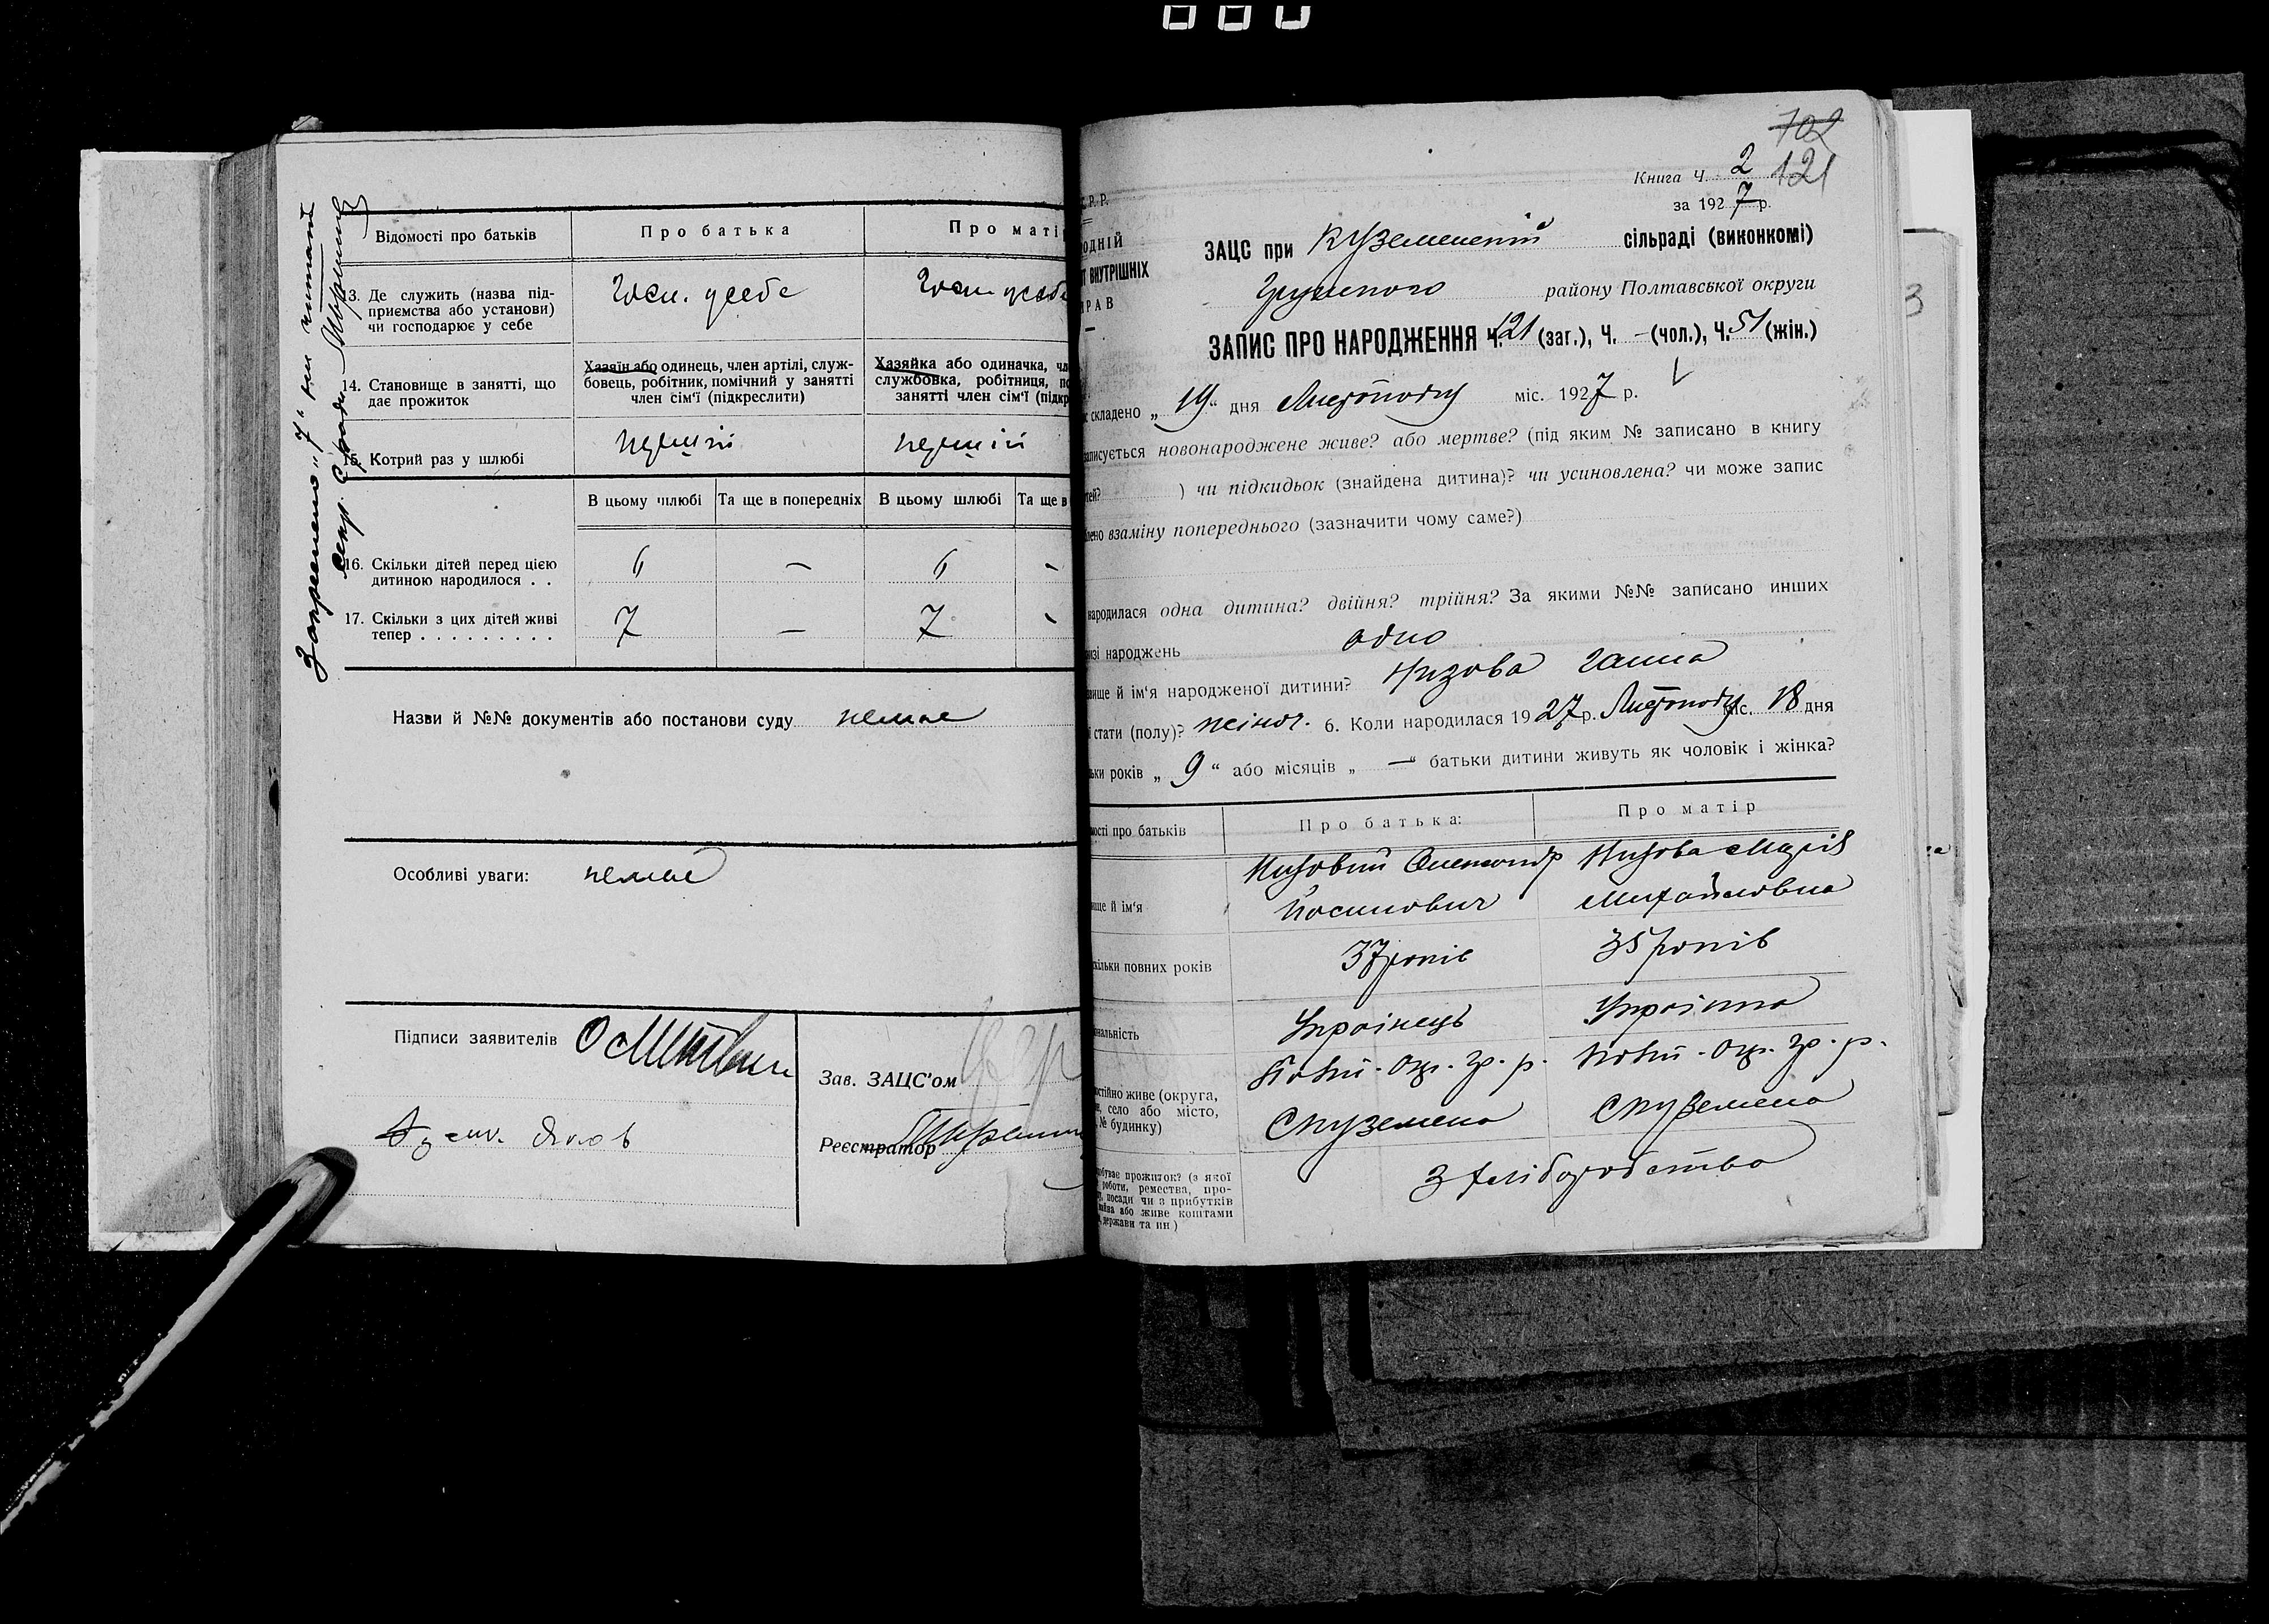 Закреслено „7" не читати
секр. с/ради
Відомості про батьків
Про батька
Про матір
13. Де служить (назва під-
приємства або установи)
чи господарює у себе
Госп. у себе
Госп у себе
14. Становище в занятті, що
дає прожиток
Хазяїн або одинець, член артілі, служ-
бовець, робітник, помічний у занятті
член сім'ї (підкреслити)
Хазяйка або одиначка, чл
службовка, робітниця, по
занятті член сім'ї (підкр
15. Котрий раз у шлюбі
перший
перший
В цьому шлюбі
Та ще в попередніх
В цьому шлюбі
Та ще в
16. Скільки дітей перед цією
дитиною народилося . .
6 — 6 -
17. Скільки з цих дітей живі
тепер . . . . . . . . . .
7 — 7 -
Назви й №№ документів або постанови суду немає
Особливі уваги: немає
Підписи заявителів
Зав. ЗАЦС'ом
Яков
Реєстратор
702
Книга Ч. 2 121
за 1927 р.
Р. Р.
ОДНІЙ
ВНУТРІШНІХ
РАВ
ЗАЦС при Куземенській сільраді (виконкомі)
Грунського району Полтавської округи
ЗАПИС ПРО НАРОДЖЕННЯ Ч. 121 (заг.), Ч. — (чол.), Ч. 51 (жін.)
складено „19" дня Листопаду міс. 1927 р.
записується новонароджене живе? або мертве? (під яким № записано в книгу
тей? ) чи підкидьок (знайдена дитина)? чи усиновлена? чи може запис
лено взаміну попереднього (зазначити чому саме?)
народилася одна дитина? двійня? трійня? За якими №№ записано инших
изі народжень одно
вище й ім'я народженої дитини? Низова Ганна
стати (полу)? жіноч. 6. Коли народилася 1927 р. Листопаду міс. 18 дня
ьки років „9" або місяців „—" батьки дитини живуть як чоловік і жінка?
мості про батьків
Про батька:
Про матір
ище й ім'я
Низовий Олександр
Йосипович
Низова Марія
Михайловна
кільки повних років
37 років
35 років
ональність
Українець
Українка
остійно живе (округа,
н, село або місто,
№ будинку)
Полт. Окр. Гр. р.
С Куземена
Полт. Окр. Гр. р.
С Куземена
обуває прожиток? (з якої
роботи, ремества, про-
посади чи з прибутків
майна або живе коштами
держави та ин.)
З хліборобства
3